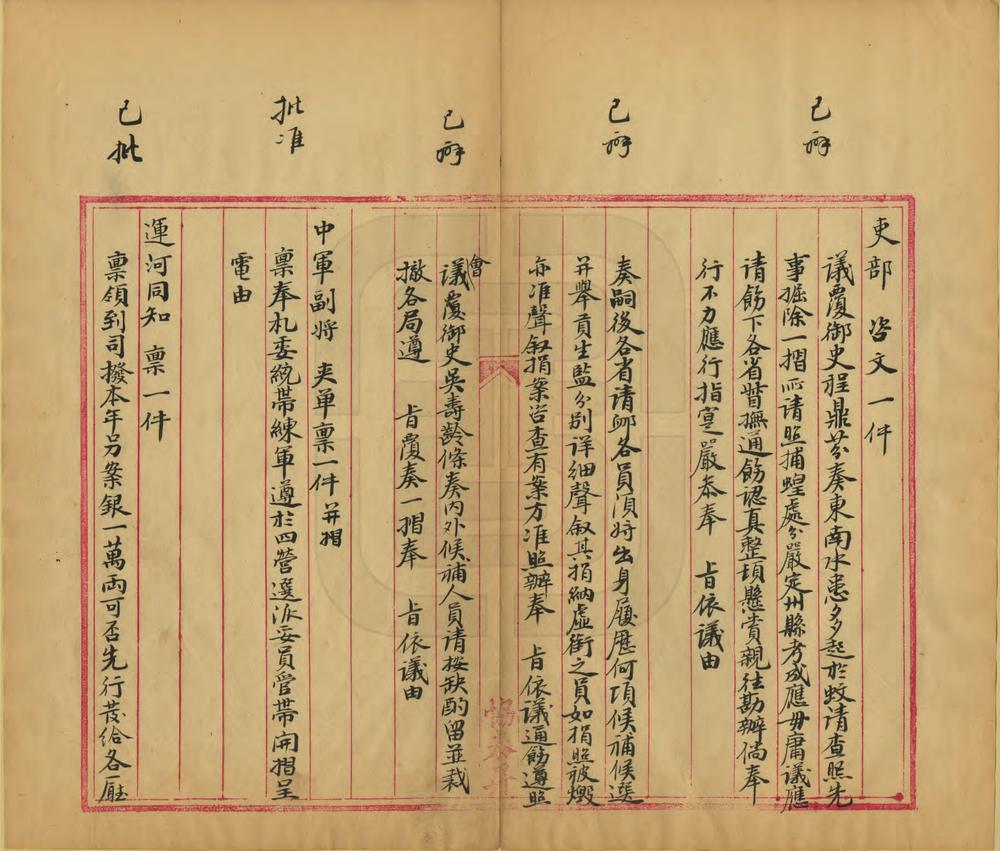 已辦
吏部 咨文一件
議覆御史程鼎芬奏東南水患多起於蛟请查照先
事掘除一摺所请照捕蝗處分嚴定州縣考成應毋庸議應
请飭下各省督撫通飭認真整頓懸賞親往勘辦倘奉
行不力應行指寔嚴叅奉 旨依議由
已辦
奏嗣後各省请卹各員湏將出身履歷何項候補候選
并舉貢生監分別详細聲叙其捐納虚銜之員如捐照被燬
亦准聲叙捐案咨查有案方准照辦奉 旨依議通飭遵照
已辦
會議覆御史吳壽齡條奏内外候補人員请按缺酌留並裁
撤各局遵 旨覆奏一摺奉 旨依議由
批准
中軍副将 夹单禀一件并摺
禀奉札委統帶練軍遵於四營選派妥員管帶開摺呈
電由
已批
運河同知 禀一件
禀領到司撥本年另案銀一萬两可否先行發給各厰
協泰昇